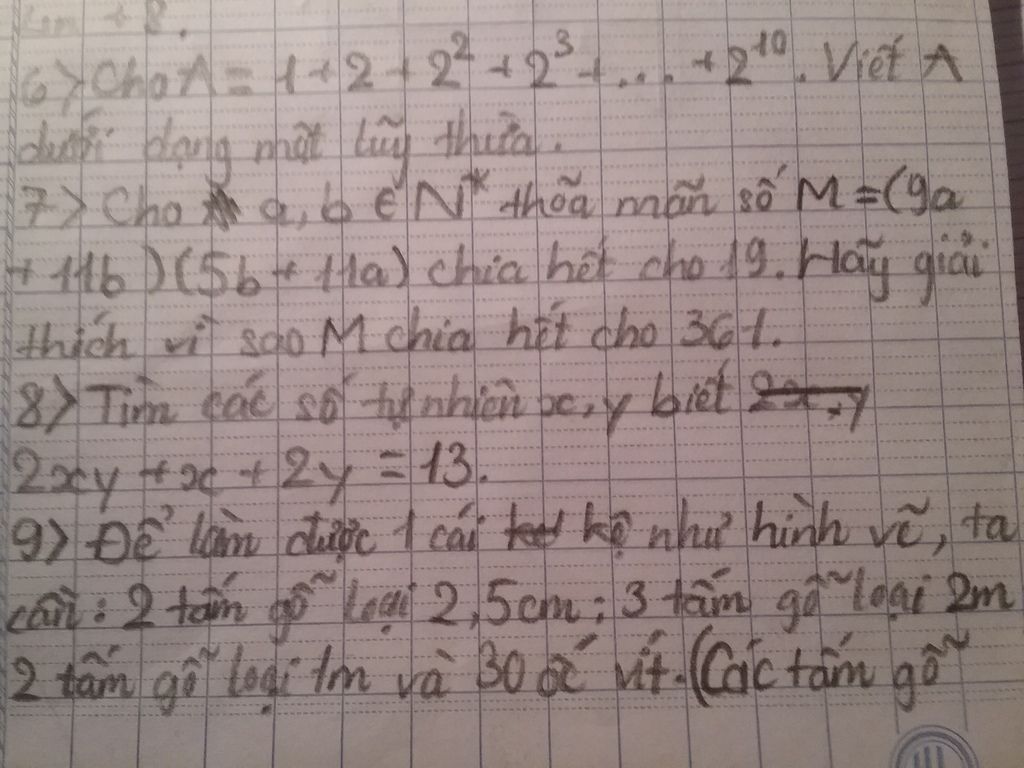 6> Cho A = 1 + 2 + 2² + 2³ + ... + 2¹⁰. Viết A
dưới dạng một lũy thừa.
7> Cho a, b ∈ N* thõa mãn số M = (9a
+ 11b)(5b + 11a) chia hết cho 19. Hãy giải
thích vì sao M chia hết cho 361.
8> Tìm các số tự nhiên x, y biết
2xy + x + 2y = 13.
9> Để làm được 1 cái kệ như hình vẽ, ta
cần: 2 tấm gỗ loại 2,5cm; 3 tấm gỗ loại 2m
2 tấm gỗ loại 1m và 30 ốc vít. (Các tấm gỗ